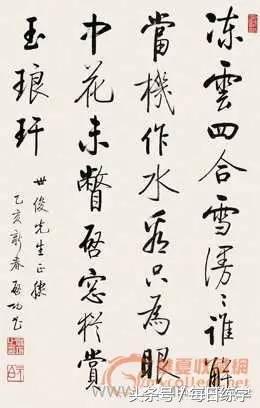 凍雲四合雪漫〻誰解
當機作水看只為眼
中花未瞥啓窗猶賞
玉琅玕
世俊先生正
乙亥新春 啓功書
头条号/每日练字